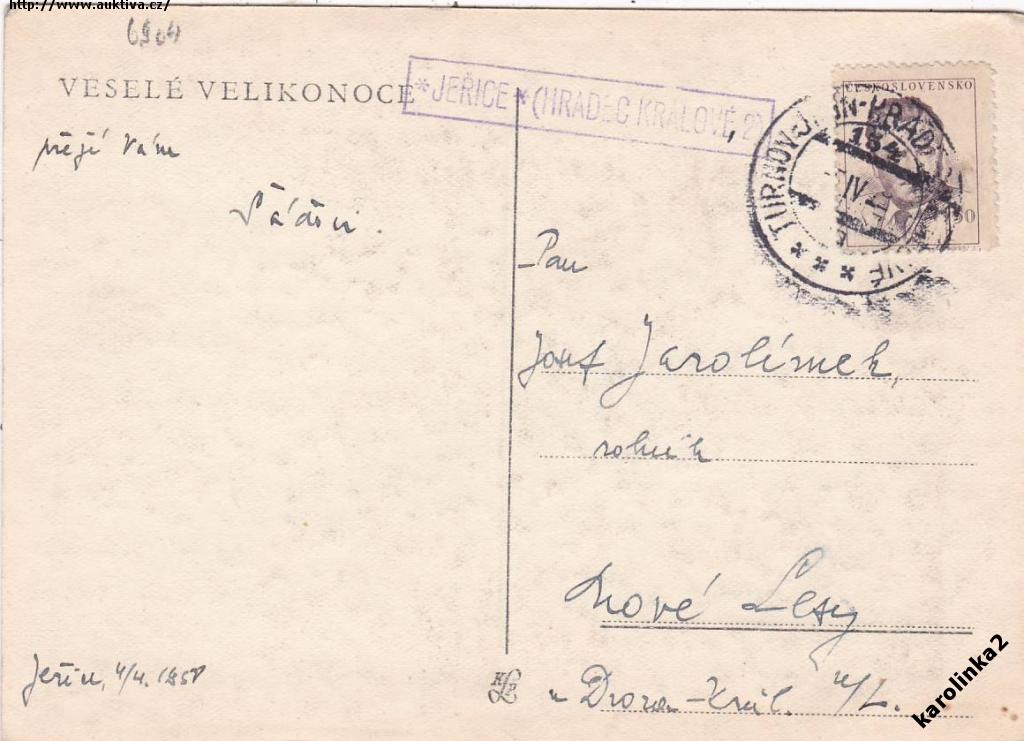 http://www.auktiva.cz/
6904
VESELÉ VELIKONOCE
přejí Vám
Jeřice,
*JEŘICE*(HRADEC KRÁLOVÉ 2)
ČESKOSLOVENSKO
TURNOV-JIČÍN-HRADEC
154
IV
Pan
Josef Jarolímek,
rolník
Nové Lesy
u Dvora-Král. n/L.
karolinka2